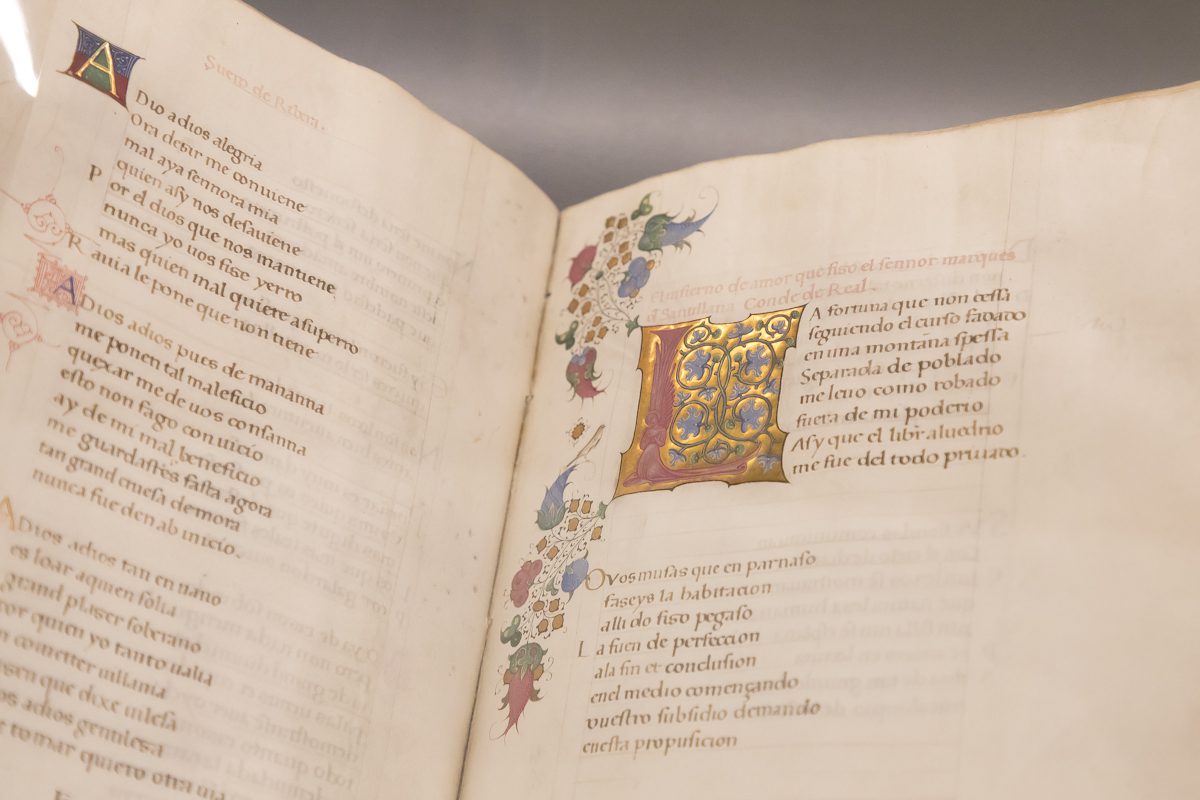 Suero de Ribera.
ADIO adios alegria
Ora desir me conuiene
mal aya sennora mia
quien asy nos desauiene
Por el dios que nos mantiene
nunca yo uos fise yerro
mas quien mal quiere a su perro
Rauia le pone que non tiene
ADios adios pues de mananna
me ponen tal maleficio
quexar me de uos consanna
esto non fago con uicio
ay de mi mal beneficio
me guardastes fasta agora
tan grand cruesa demora
nunca fue den ab inicio.
ADios adios tan en uano
es loar aquien solia
grand plaser soberano
por quien yo tanto ualia
cometter uillania
que dixe uilesa
adios gentilesa
tomar quiero otra uia
El infierno de amor que fiso el sennor marques
de Santillana Conde de Real.
LA fortuna que non cessa
seguiendo el curso fadado
en una montana spessa
Separada de poblado
me leuo como robado
fuera de mi poderio
Asy que el libre aluedrio
me fue del todo priuado.
O vos musas que en parnaso
faseys la habitacion
alli do fiso pegaso
La fuen de perfeccion
a la fin et conclusion
enel medio començando
vuestro subsidio demando
en esta proposicion